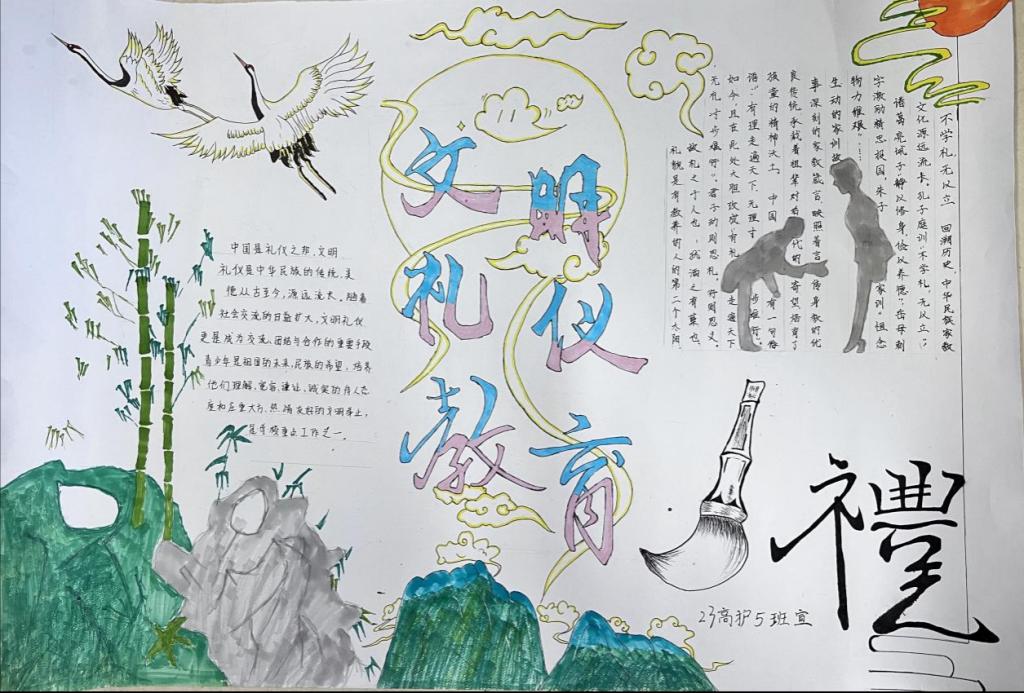 文明
礼仪
教育
中国是礼仪之邦,文明
礼仪是中华民族的传统,美
德从古至今,源远流长,随着
社会交流的日益扩大,文明礼仪
更是成为交流、团结与合作的重要手段
青少年是祖国的未来,民族的希望,培养
他们理解、宽容、谦让、诚实的待人态
度和庄重大方、热情友好的文明举止,
是学校重点工作之一。
不学礼,无以立 回溯历史,中华民族家教
文化源远流长。孔子庭训“不学礼,无以立”;
诸葛亮诫子“静以修身,俭以养德”;岳母刺
字激励精忠报国,朱子 家训“恒念
物力维艰”……
生动的家训故
事深刻的家教箴言,映照着言传身教的优
良传统,承载着祖辈对后代的 寄望培育了
孩童的精神沃土。 中国 有一句俗
语:“有理走遍天下,无理寸 步难行”。
如今,且在此处大胆改成“有礼 走遍天下
无礼寸步难行”。君子动则思礼,行则思义。
故礼之于人也,犹酒之有蘖也,
礼貌是有教养的人的第二个太阳。
禮
23高护5班宣